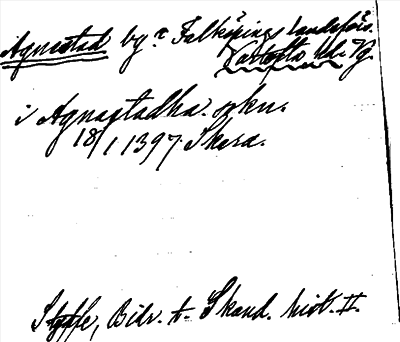 Agnestad by i Falköpings landsförs.
Vartofta hd. Vg.
i Agnastadha. sokn.
18/1 1397. Skara.
Styffe, Bidr. t. Skand. hist. II.